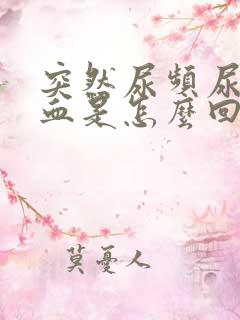 突然尿頻尿
血是怎麼回
莫憂人